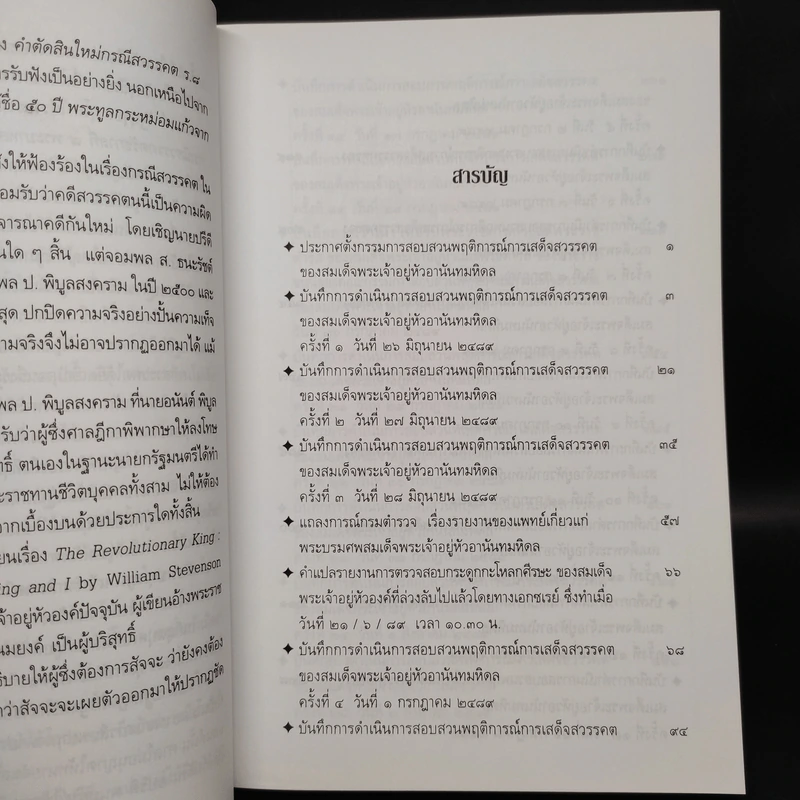 ง คำตัดสินใหม่กรณีสวรรคต ร.๘
รรับฟังเป็นอย่างยิ่ง นอกเหนือไปจาก
ชื่อ ๕๐ ปี พระทูลกระหม่อมแก้วจาก
ังให้ฟ้องร้องในเรื่องกรณีสวรรคต ใน
อมรับว่าคดีสวรรคตนี้เป็นความผิด
จารณาคดีกันใหม่ โดยเชิญนายปรีดี
นใด ๆ สิ้น แต่จอมพล ส. ธนะรัชต์
พล ป. พิบูลสงคราม ในปี ๒๕๐๐ และ
สุด ปกปิดความจริงอย่างปั้นความเท็จ
วามจริงจึงไม่อาจปรากฏออกมาได้ แม้
พล ป. พิบูลสงคราม ที่นายอนันต์ พิบูล
รับว่าผู้ซึ่งศาลฎีกาพิพากษาให้ลงโทษ
ทธิ์ ตนเองในฐานะนายกรัฐมนตรีได้ทำ
ะราชทานชีวิตบุคคลทั้งสาม ไม่ให้ต้อง
จากเบื้องบนด้วยประการใดทั้งสิ้น
ยนเรื่อง The Revolutionary King :
ing and I by William Stevenson
จ้าอยู่หัวองค์ปัจจุบัน ผู้เขียนอ้างพระราช
นมยงค์ เป็นผู้บริสุทธิ์
ธิบายให้ผู้ซึ่งต้องการสัจจะ ว่ายังคงต้อง
กว่าสัจจะจะเผยตัวออกมาให้ปรากฏชัด
สารบัญ
✦ ประกาศตั้งกรรมการสอบสวนพฤติการณ์การเสด็จสวรรคต ๑
ของสมเด็จพระเจ้าอยู่หัวอานันทมหิดล
✦ บันทึกการดำเนินการสอบสวนพฤติการณ์การเสด็จสวรรคต ๓
ของสมเด็จพระเจ้าอยู่หัวอานันทมหิดล
ครั้งที่ ๑ วันที่ ๒๖ มิถุนายน ๒๔๘๙
✦ บันทึกการดำเนินการสอบสวนพฤติการณ์การเสด็จสวรรคต ๒๑
ของสมเด็จพระเจ้าอยู่หัวอานันทมหิดล
ครั้งที่ ๒ วันที่ ๒๗ มิถุนายน ๒๔๘๙
✦ บันทึกการดำเนินการสอบสวนพฤติการณ์การเสด็จสวรรคต ๓๕
ของสมเด็จพระเจ้าอยู่หัวอานันทมหิดล
ครั้งที่ ๓ วันที่ ๒๘ มิถุนายน ๒๔๘๙
✦ แถลงการณ์กรมตำรวจ เรื่องรายงานของแพทย์เกี่ยวแก่ ๕๗
พระบรมศพสมเด็จพระเจ้าอยู่หัวอานันทมหิดล
✦ คำแปลรายงานการตรวจสอบกระดูกกะโหลกศีรษะ ของสมเด็จ ๖๖
พระเจ้าอยู่หัวองค์ที่ล่วงลับไปแล้วโดยทางเอกซเรย์ ซึ่งทำเมื่อ
วันที่ ๒๑ / ๖ / ๘๙ เวลา ๑๐.๓๐ น.
✦ บันทึกการดำเนินการสอบสวนพฤติการณ์การเสด็จสวรรคต ๖๘
ของสมเด็จพระเจ้าอยู่หัวอานันทมหิดล
ครั้งที่ ๔ วันที่ ๑ กรกฎาคม ๒๔๘๙
✦ บันทึกการดำเนินการสอบสวนพฤติการณ์การเสด็จสวรรคต ๙๔